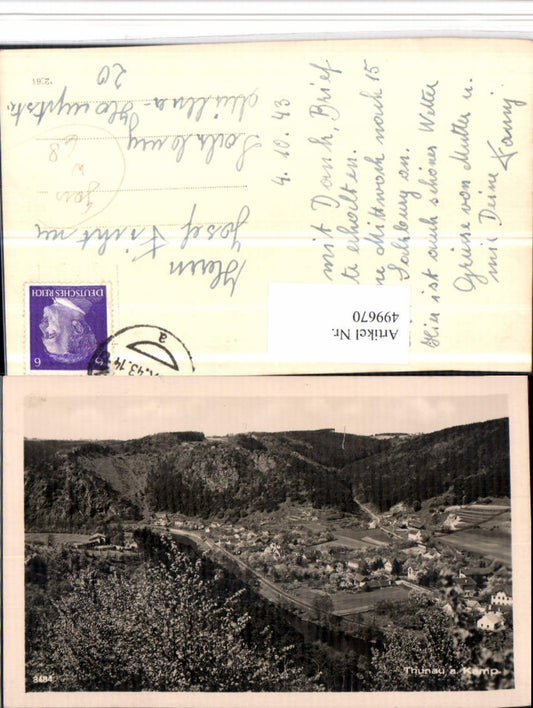 4.10.43
mit Dank, Brief
te erhalten.
Mittwoch nach 15
Salzburg an.
Hier ist auch schönes Wetter
Grüsse von Mutter u.
mir Deine Fanny
Herrn
Josef
Salzburg
20
DEUTSCHES REICH
6
.43.14
a
Artikel Nr.
499670
8484
Thunau a. Kamp